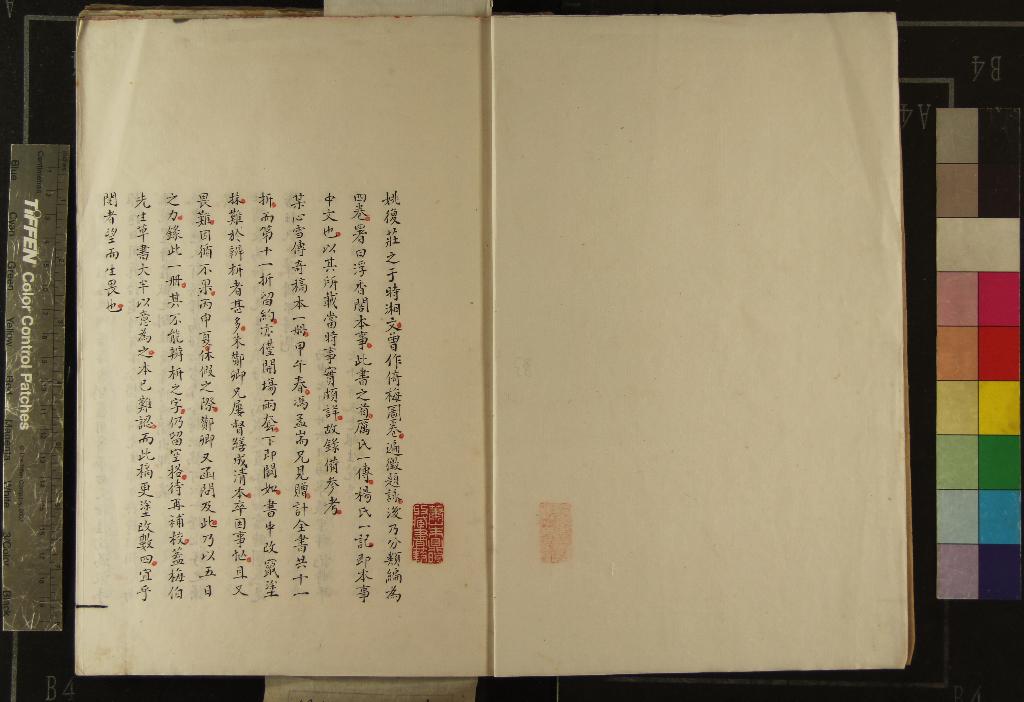 姚復莊之于時湘文曾作倚梅圖卷遍徵題詠後乃分類編為
四卷署曰浮香閣本事此書之首厲氏一傳楊氏一記即本事
中文也以其所載當時事實頗詳故錄備參考
某心雪傳奇稿本一冊甲午春馮孟耑兄見贈計全書共十一
折而第十一折留約亦僅開場兩套下即闕如書中改竄塗
抹難於辨析者甚多朱酇卿兄屢督繕成清本卒因事忙且又
畏難因循不果丙申夏休假之際酇卿又函問及此乃以五日
之力錄此一冊其不能辨析之字仍留空格待再補校蓋梅伯
先生草書大半以意為之本已難認而此稿更塗改數四宜乎
閱者望而生畏也
TIFFEN Color Control Patches
Centimetres
Blue
Cyan
Green
Yellow
Red
Magenta
White
3/Color
Black
B4
A4
B4
B4
A